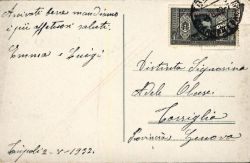 Arrivati bene mandiamo
i più affettuosi saluti.
Emma e Luigi
Tripoli 2-V-1932.
Distinta Signorina
Adele
Torriglia
Provincia Genova